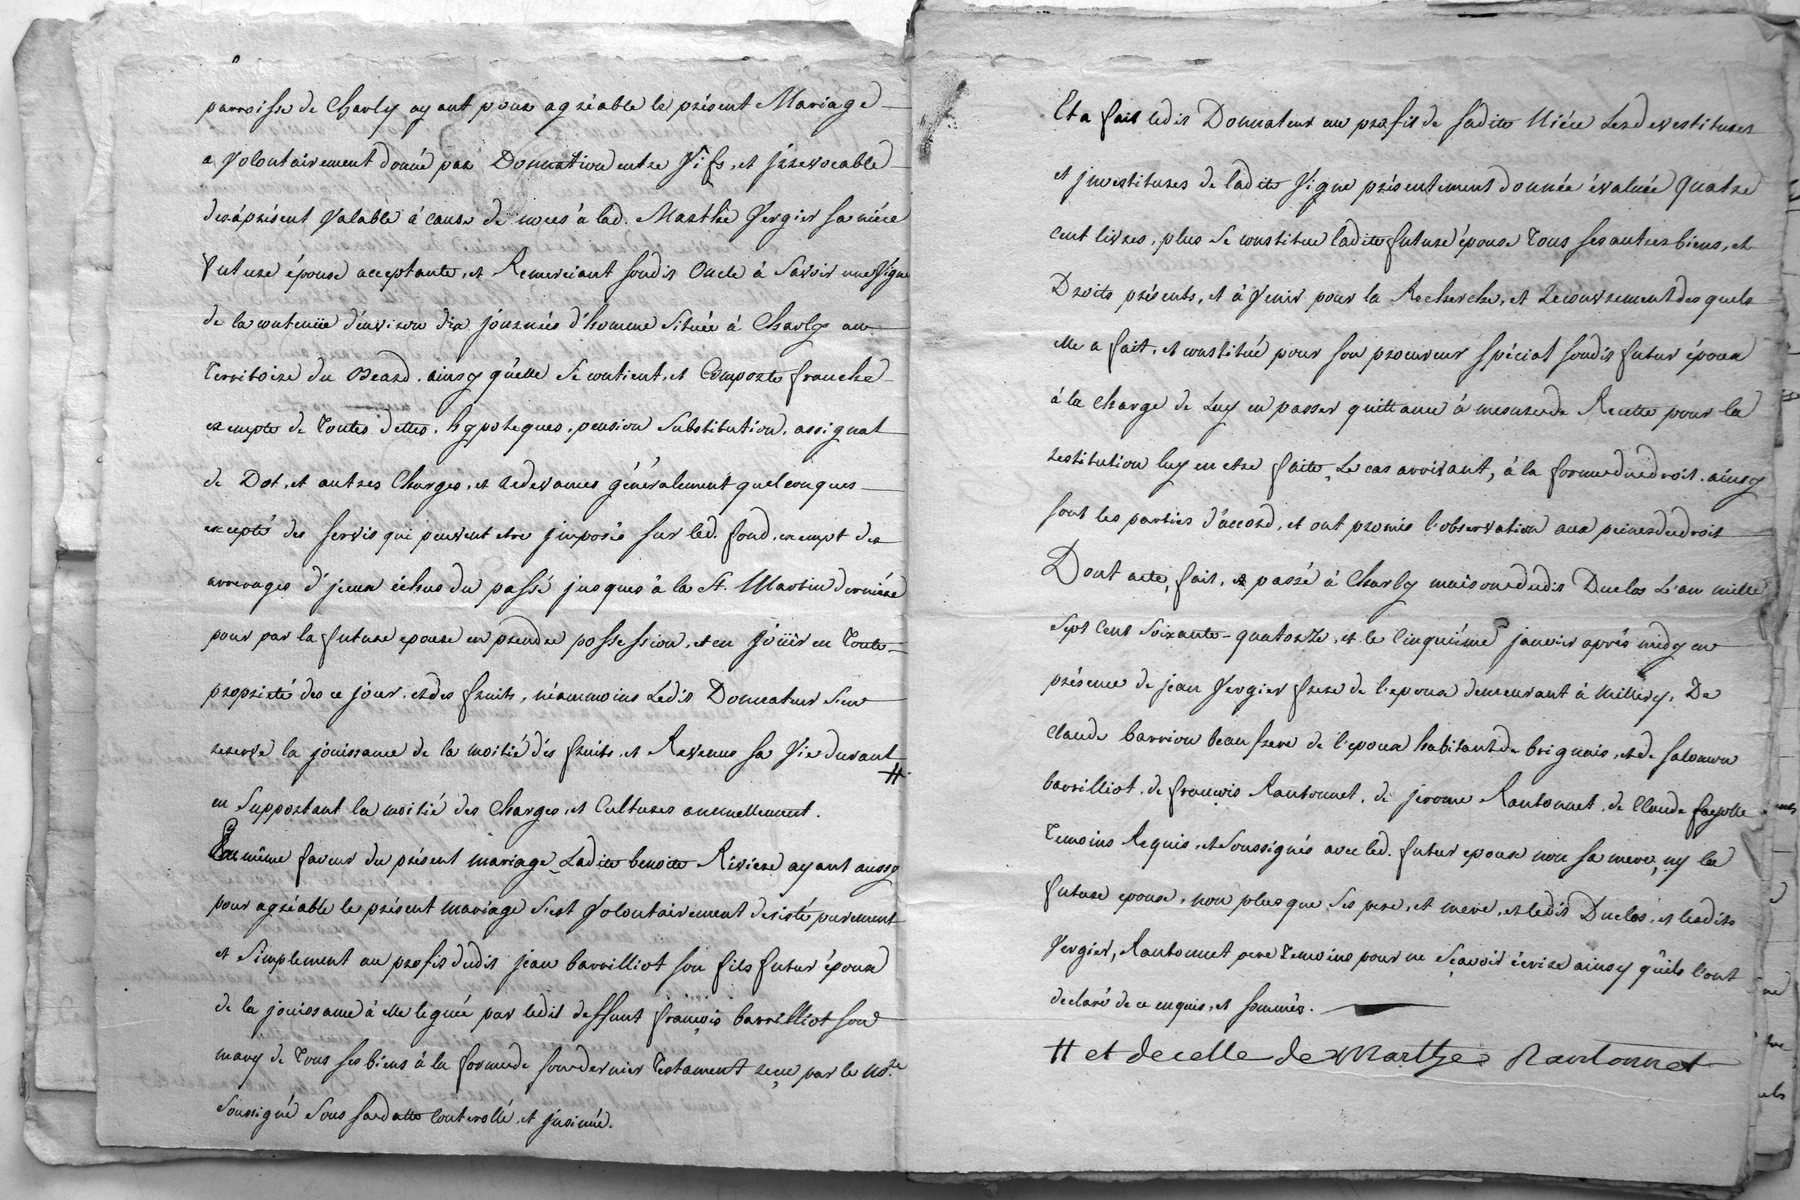 parroisse de Charly ayant pour agréable le présent Mariage
a Volontairement donné par Donnation entre Vifs, et jrrevocable
des àprésent Valable à cause de noces à lad. Marthe Vergier sa niéce
future épouse acceptante, et Remerciant sondit Oncle à Savoir une Vigne
de la contenüe d'environ dix journées d'homme Située à Charly au
Territoire du Beard, ainsy qu'elle Se contient, et Comporte franche
exempte de Toutes dettes, hypoteques, pension Substitution, assignat
de Dot, et autres Charges, et redevances généralement quelconques
excepté des servis qui peuvent etre jmposés sur led. fond, exempt des
arrerages d'jceux échus du passé jusques à la St. Martin derniére
pour par la future epouse en prendre possession, et en joüir en Toute
proprieté des ce jour, et des fruits, néammoins Ledit Donnateur S'en
reserve la jouissance de la moitié des fruits, et Revenus sa Vie durant #
en Supportant la moitié des Charges, et Cultures annuellement.
En même faveur du présent mariage Ladite benoite Riviere ayant aussy
pour agréable le présent mariage S'est Volontairement desisté purement
et Simplement au profit dudit jean barrilliot son fils futur époux
de la jouissance à elle leguée par ledit deffunt françois barrilliot son
mary de Tous ses biens à la forme de son dernier Testament reçu par le no.re
Soussigné Sous sa datte Controllé, et jnsinué.
Et a fait ledit Donnateur au profit de sadite Niéce Les devestitures
et jnvestitures de ladite Vigne présentement donnée évaluée quatre
cent livres, plus Se constitue ladite future épouse Tous ses autres biens, et
Droits présents, et à Venir pour la Recherche, et recouvrement desquels
elle a fait, et constitué pour son procureur spécial sondit futur époux
à la charge de Luy en passer quittance à mesure de Recette pour la
restitution luy en etre faite, Le cas arrivant, à la forme du droit, ainsy
sont les parties d'accord, et ont promis l'observation aux peines du droit
Dont acte, fait, et passé à Charly maison dudit Duclos L'an mille
sept Cent Soixante-quatorze, et le Cinquiéme janvier aprés midy en
présence de jean Vergier frere de l'epoux demeurant à millery, De
Claude barriou beau frere de l'epoux habitant de brignais, et de salomon
barrilliot, de françois Rantonnet, de jerome Rantonnet, de Claude fayolle
Temoins Requis, et Soussignés avec led. futur epoux non sa mere, ny la
future epouse, non plus que Ses pere, et mere, et ledit Duclos, et lesdits
Vergier, Rantonnet pere Temoins pour ne Sçavoir écrire ainsy qu'ils l'ont
declaré de ce enquis, et sommés.
# et de celle de Marthe Rantonnet